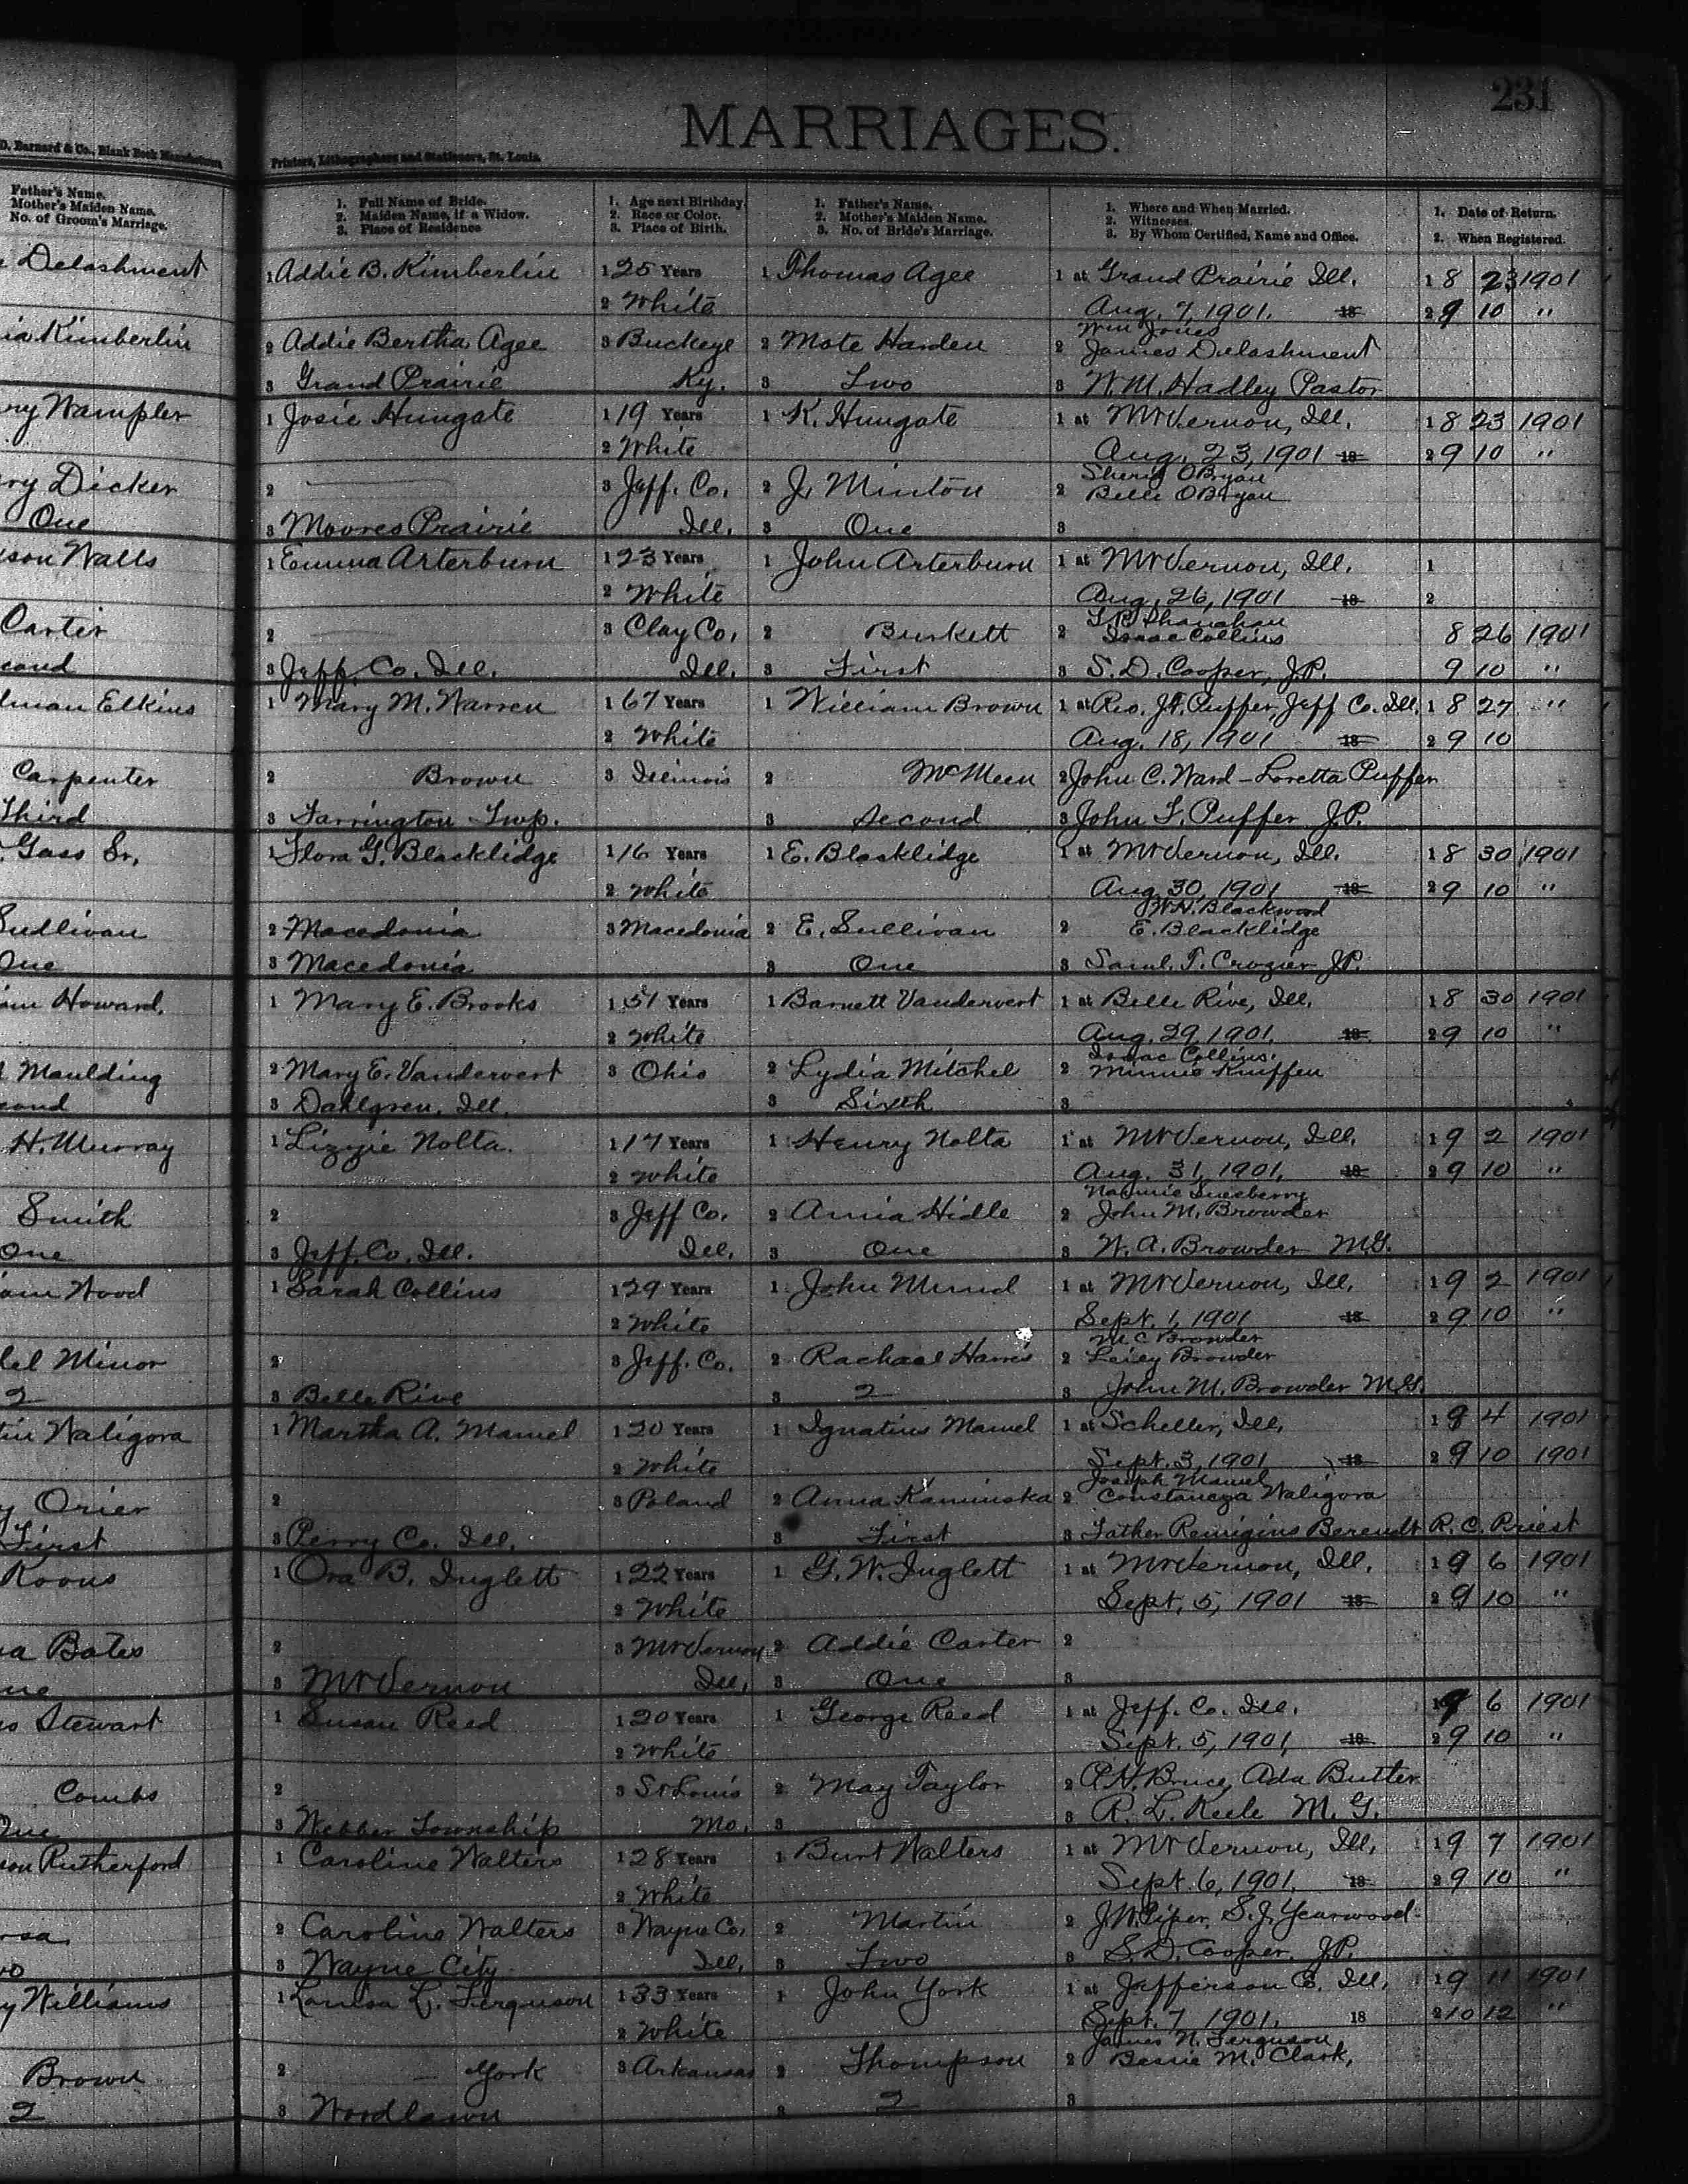 231
MARRIAGES.
D. Barnard & Co., Blank Book Manufacturers
Printers, Lithographers and Stationers, St. Louis.
Father's Name.
Mother's Maiden Name.
No. of Groom's Marriage.
1. Full Name of Bride.
2. Maiden Name, if a Widow.
3. Place of Residence
1. Age next Birthday.
2. Race or Color.
3. Place of Birth.
1. Father's Name.
2. Mother's Maiden Name.
3. No. of Bride's Marriage.
1. Where and When Married.
2. Witnesses.
3. By Whom Certified, Name and Office.
1. Date of Return.
2. When Registered.
Delashment 1 Addie B. Kimberlin 1 25 Years 1 Thomas Agee 1 at Grand Prairie Ill. 1 8 23 1901
2 White Aug. 7, 1901. 18 2 9 10 "
Wm Jones
Kimberlin 2 Addie Bertha Agee 3 Buckeye 2 Mote Harden 2 James Delashment
3 Grand Prairie Ky. 3 Two 3 W. M. Hadley Pastor
Wampler 1 Josie Hungate 1 19 Years 1 K. Hungate 1 at Mt Vernon, Ill. 1 8 23 1901
2 White Aug. 23, 1901 18 2 9 10 "
OBryan
Dicker 2 3 Jeff. Co. 2 J. Minton 2 Belle OBryan
One 3 Moores Prairie Ill. 3 One 3
Walls 1 Emma Arterburn 1 23 Years 1 John Arterburn 1 at Mt Vernon, Ill. 1
2 White Aug. 26, 1901 18 2
Carter 2 3 Clay Co, 2 Burkett 2 Isaac Collins 8 26 1901
3 Jeff. Co. Ill. Ill. 3 First 3 S. D. Cooper, J.P. 9 10 "
Elkins 1 Mary M. Warren 1 67 Years 1 William Brown 1 at Res. J.F. Puffer, Jeff Co. Ill. 1 8 27 "
2 White Aug. 18, 1901 18 2 9 10
Carpenter 2 Brown 3 Illinois 2 McMeen 2 John C. Ward - Loretta Puffer
Third 3 Farrington Twp. 3 Second 3 John F. Puffer J.P.
Gass Sr, 1 Flora G. Blacklidge 1 16 Years 1 E. Blacklidge 1 at Mt Vernon, Ill. 1 8 30 1901
2 White Aug 30, 1901 18 2 9 10 "
W.H. Blackwood
Sullivan 2 Macedonia 3 Macedonia 2 E. Sullivan 2 E. Blacklidge
One 3 Macedonia 3 One 3 Saml. T. Crozier J.P.
Howard, 1 Mary E. Brooks 1 51 Years 1 Barnett Vandervert 1 at Belle Rive, Ill. 1 8 30 1901
2 White Aug. 29, 1901. 18 2 9 10 "
Isaac Collins.
Maulding 2 Mary E. Vandervert 3 Ohio 2 Lydia Mitchel 2 Minnie Kniffen
3 Dahlgren, Ill. 3 Sixth 3
H. Murray 1 Lizzie Nolta. 1 17 Years 1 Henry Nolta 1 at Mt Vernon, Ill. 1 9 2 1901
2 White Aug. 31, 1901. 18 2 9 10 "
Smith 2 3 Jeff Co. 2 Annia Hidle 2 John M. Browder
One 3 Jeff. Co. Ill. Ill. 3 One 3 W. A. Browder M.G.
Wood 1 Sarah Collins 1 29 Years 1 John Mund 1 at Mt Vernon, Ill. 1 9 2 1901
2 White Sept. 1, 1901 18 2 9 10 "
M C Browder
Minor 2 3 Jeff. Co. 2 Rachael Harris 2 Browder
2 3 Belle Rive 3 2 3 John M. Browder M.G.
Waligora 1 Martha A. Mamel 1 20 Years 1 Ignatius Mamel 1 at Scheller, Ill. 1 9 4 1901
2 White Sept. 3, 1901 18 2 9 10 1901
Joseph Mamel
Orier 2 3 Poland 2 Anna Kaminska 2 Constancza Waligora
First 3 Perry Co. Ill. 3 First 3 Father Remigius Berendt R. C. Priest
Koons 1 Ora B. Inglett 1 22 Years 1 G. W. Inglett 1 at Mt Vernon, Ill. 1 9 6 1901
2 White Sept. 5, 1901 18 2 9 10 "
Bates 2 3 Mt Vernon 2 Addie Carter 2
3 Mt Vernon Ill, 3 One 3
Stewart 1 Susan Reed 1 20 Years 1 George Reed 1 at Jeff. Co. Ill. 1 9 6 1901
2 White Sept. 5, 1901 18 2 9 10 "
Combs 2 3 St Louis 2 May Taylor 2 Bruce, Ada Butter
One 3 Webber Township Mo. 3 3 R. L. Keele M. G.
Rutherford 1 Caroline Walters 1 28 Years 1 Burt Walters 1 at Mt Vernon, Ill, 1 9 7 1901
2 White Sept. 6, 1901. 18 2 9 10 "
2 Caroline Walters 3 Wayne Co, 2 Martin 2 J.W. Piper, S. J. Yearwood
3 Wayne City Ill, 3 Two 3 S.D. Cooper J.P.
Williams 1 Louisa L. Ferguson 1 33 Years 1 John York 1 at Jefferson Co. Ill, 1 9 11 1901
2 White Sept. 7 1901. 18 2 10 12 "
James N. Ferguson
Brown 2 York 3 Arkansas 2 Thompson 2 Bessie M. Clark,
2 3 Woodlawn 3 2 3